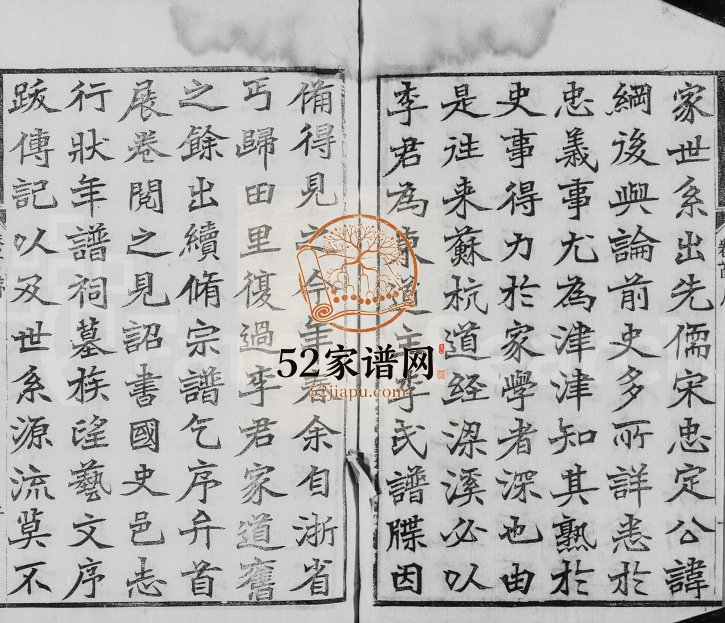 家世系出先儒宋忠定公諱
綱後與論前史多所詳悉於
忠義事尤為津津知其熟於
史事得力於家學者深也由
是往来蘇杭道経梁溪必以
李君為東道主李氏譜牒因
備得見之今年春余自浙省
丐歸田里復過李君家道舊
之餘出續脩宗譜乞序弁首
展卷閱之見詔書國史邑志
行狀年譜祠墓族望藝文序
跋傳記以及世系源流莫不
52家谱网
52jiapu.com